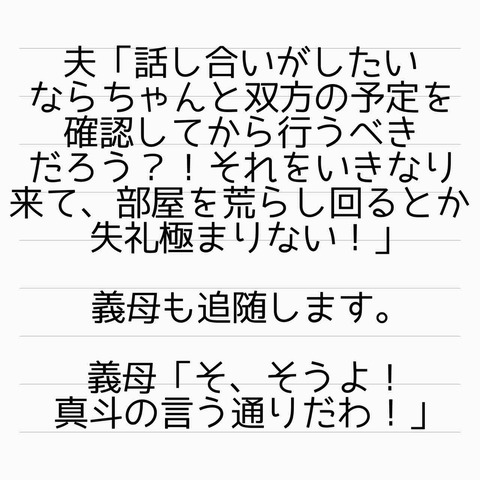 夫「話し合いがしたい
ならちゃんと双方の予定を
確認してから行うべき
だろう？！それをいきなり
来て、部屋を荒らし回るとか
失礼極まりない！」
義母も追随します。
義母「そ、そうよ！
真斗の言う通りだわ！」